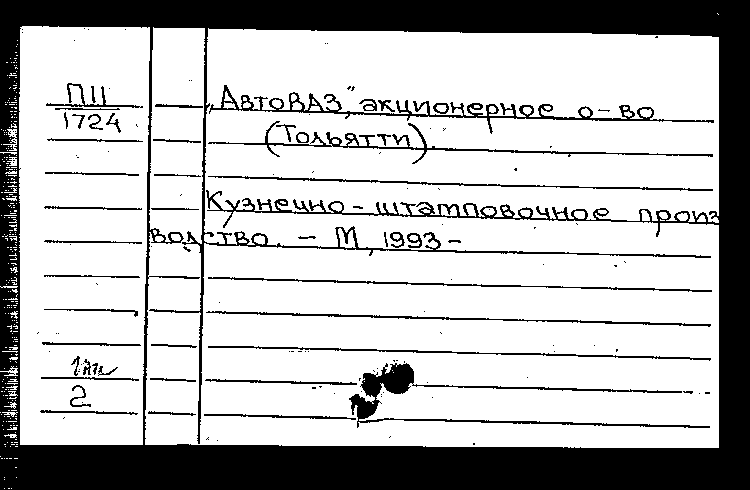 ПII
1724
„АвтоВАЗ", акционерное о-во
(Тольятти).
Кузнечно-штамповочное произ
водство. – М, 1993 –
2